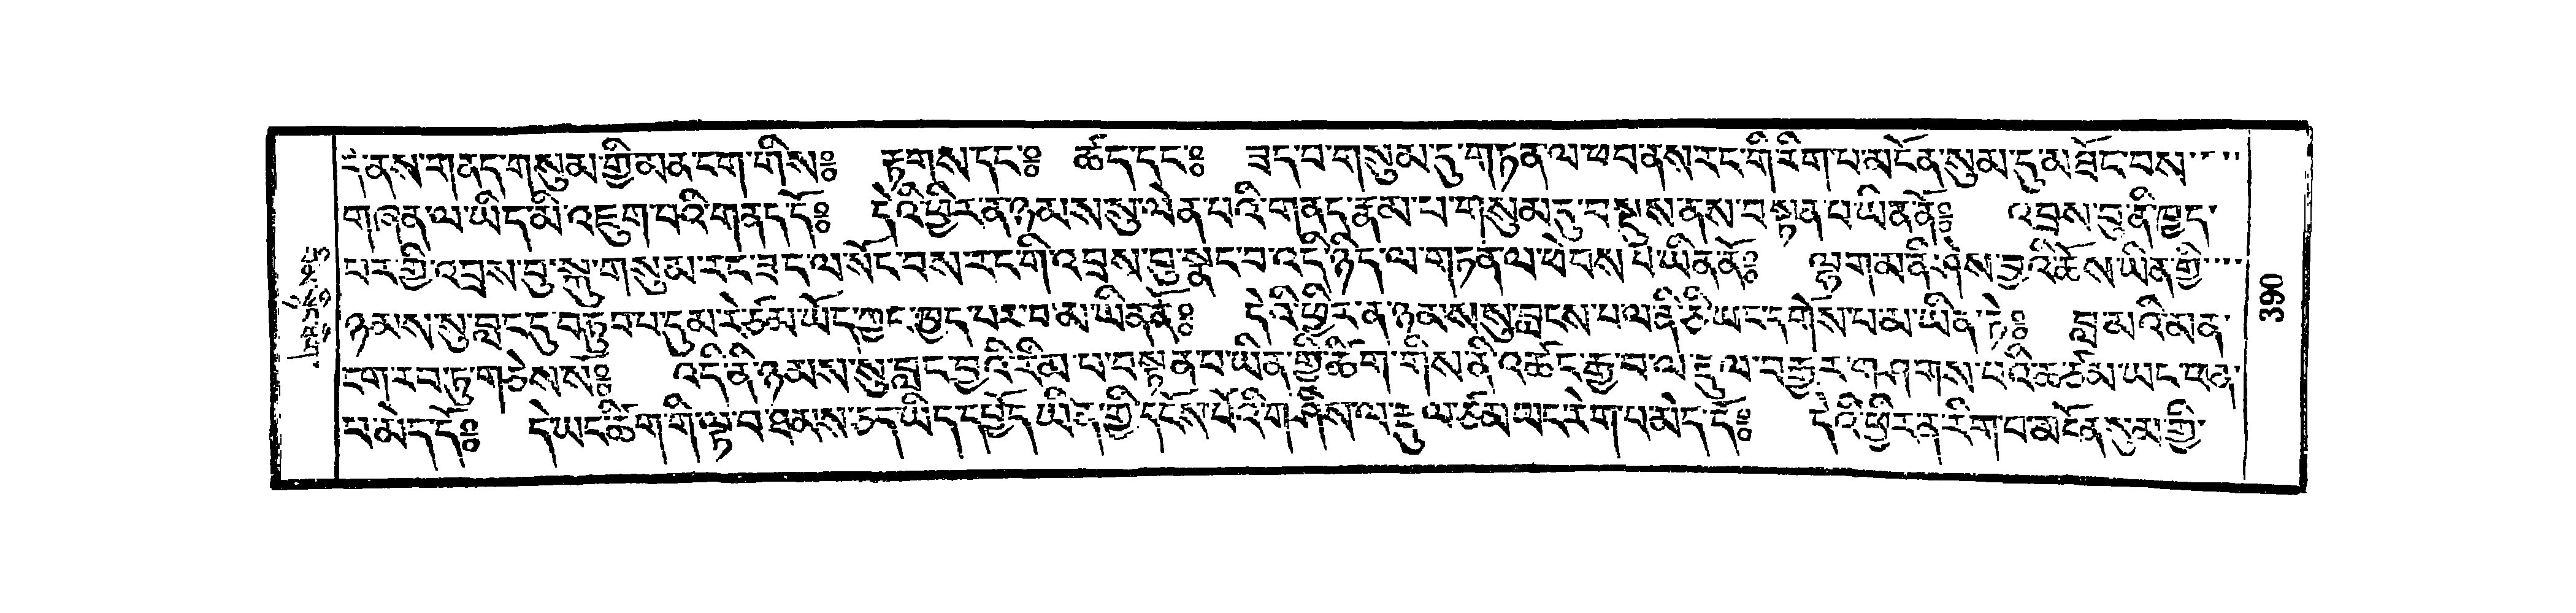 དེ་ནས་གནད་གསུམ་གྱི་མན་ངག་གིས༔ རྟགས་དང་༔ ཚད་དང་༔ ཟད་པ་གསུམ་དུ་གཏན་ལ་ཕབ་ནས་རང་གི་རིག་པ་མངོན་སུམ་དུ་མཐོང་བས་
གཞན་ལ་ཡིད་མི་འཇུག་པའི་གནད་དོ༔ དེའི་ཕྱིར་ན་ཉམས་སུ་ལེན་པའི་གནད་རྣམ་པ་གསུམ་དུ་བསྡུས་ནས་བསྟན་པ་ཡིན་ནོ༔ འབྲས་བུ་ནི་ཁྱད་
པར་གྱི་འབྲས་བུ་སྐུ་གསུམ་རང་ཟད་ལ་སོང་བས་རང་གི་འབྲས་བུ་སྣང་བ་འདི་ཉིད་ལ་གཏན་ལ་ཕེབས་པེ་ཡིན་ནོ༔ ལྷག་མ་ནི་ཤེས་བྱའི་ཆོས་ཡིན་གྱི་
ཉམས་སུ་བླང་དུ་བཏུབ་པ་དུམ་རེ་ཙམ་ཡོད་ཀྱང་ཁྱད་པར་བ་མ་ཡིན་ནོ༔ དེའི་ཕྱིར་ན་ཉམས་སུ་བླངས་པ་ལ་ནི་ཅི་ཡང་དགོས་པ་མ་ཡིན་ཏེ༔ བླ་མའི་མན་
ངག་རབ་ཏུ་གཅེས་སོ༔ འདི་ནི་ཉམས་སུ་བླང་བྱའི་རིམ་པ་བསྟན་པ་ཡིན་གྱི་ཚིག་གིས་ནི་འཚང་རྒྱ་བ་ལ་རྡུལ་བརྒྱར་གཤགས་པའི་ཆ་ཙམ་ཡང་ཕན་
པ་མེད་དོ༔ དེ་ཡང་ཚིག་གི་ལྟ་བ་ཐམས་ཅད་ཡིད་དཔྱོད་ཡིན་གྱི་དངོས་པོའི་གཤིས་ལ་རྡུལ་ཙམ་ཡང་རེག་པ་མེད་དོ༔ དེའི་ཕྱིར་ན་རིག་པ་མངོན་སུམ་གྱི་